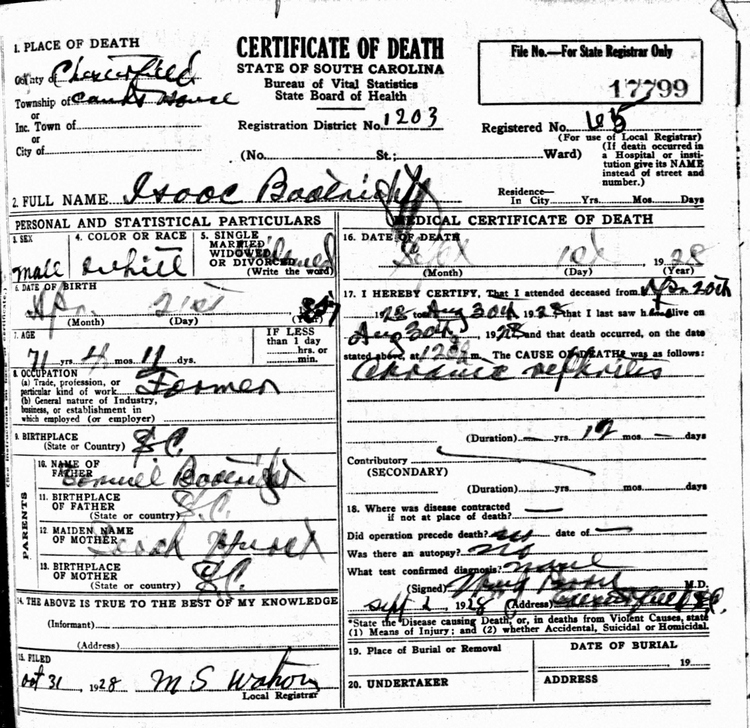 1. PLACE OF DEATH
County of Chesterfield
Township of Court House
or
Inc. Town of
or
City of
CERTIFICATE OF DEATH
STATE OF SOUTH CAROLINA
Bureau of Vital Statistics
State Board of Health
Registration District No. 1203
(No. St.; Ward)
File No.—For State Registrar Only
17799
Registered No. 65
(For use of Local Registrar)
(If death occurred in
a Hospital or insti-
tution give its NAME
instead of street and
number.)
2. FULL NAME Isaac Boatright
Residence—
In City Yrs. Mos. Days
PERSONAL AND STATISTICAL PARTICULARS
3. SEX
male
4. COLOR OR RACE
white
5. SINGLE
MARRIED
WIDOWED
OR DIVORCED
(Write the word)
6. DATE OF BIRTH
Apr. 21st
(Month) (Day)
7. AGE
71 yrs 4 mos. 11 dys.
IF LESS
than 1 day
hrs. or
min.
8. OCCUPATION
(a) Trade, profession, or
particular kind of work Farmer
(b) General nature of Industry,
business, or establishment in
which employed (or employer)
9. BIRTHPLACE
(State or Country) S.C.
PARENTS
10. NAME OF
FATHER Samuel Boatright
11. BIRTHPLACE
OF FATHER
(State or country) S.C.
12. MAIDEN NAME
OF MOTHER
13. BIRTHPLACE
OF MOTHER
(State or country) S.C.
14. THE ABOVE IS TRUE TO THE BEST OF MY KNOWLEDGE
(Informant)
(Address)
15. FILED
Oct 31, 1928 M S Watson
Local Registrar
MEDICAL CERTIFICATE OF DEATH
16. DATE OF DEATH
Sept 1st 1928
(Month) (Day) (Year)
17. I HEREBY CERTIFY, That I attended deceased from Apr 20th
1928 to Aug 30th 1928 that I last saw h alive on
Aug 30th, 1928 and that death occurred, on the date
stated above, at 12 m. The CAUSE OF DEATH was as follows:
Chronic nephritis
(Duration) — yrs. 12 mos. — days
Contributory
(SECONDARY)
(Duration) yrs. mos. days
18. Where was disease contracted
if not at place of death? —
Did operation precede death? no date of —
Was there an autopsy? no
What test confirmed diagnosis? none
(Signed) M.D.
Sept 2, 1928 (Address) Chesterfield S.C.
*State the Disease causing Death, or, in deaths from Violent Causes, state
(1) Means of Injury; and (2) whether Accidental, Suicidal or Homicidal.
19. Place of Burial or Removal
DATE OF BURIAL
19
20. UNDERTAKER
ADDRESS